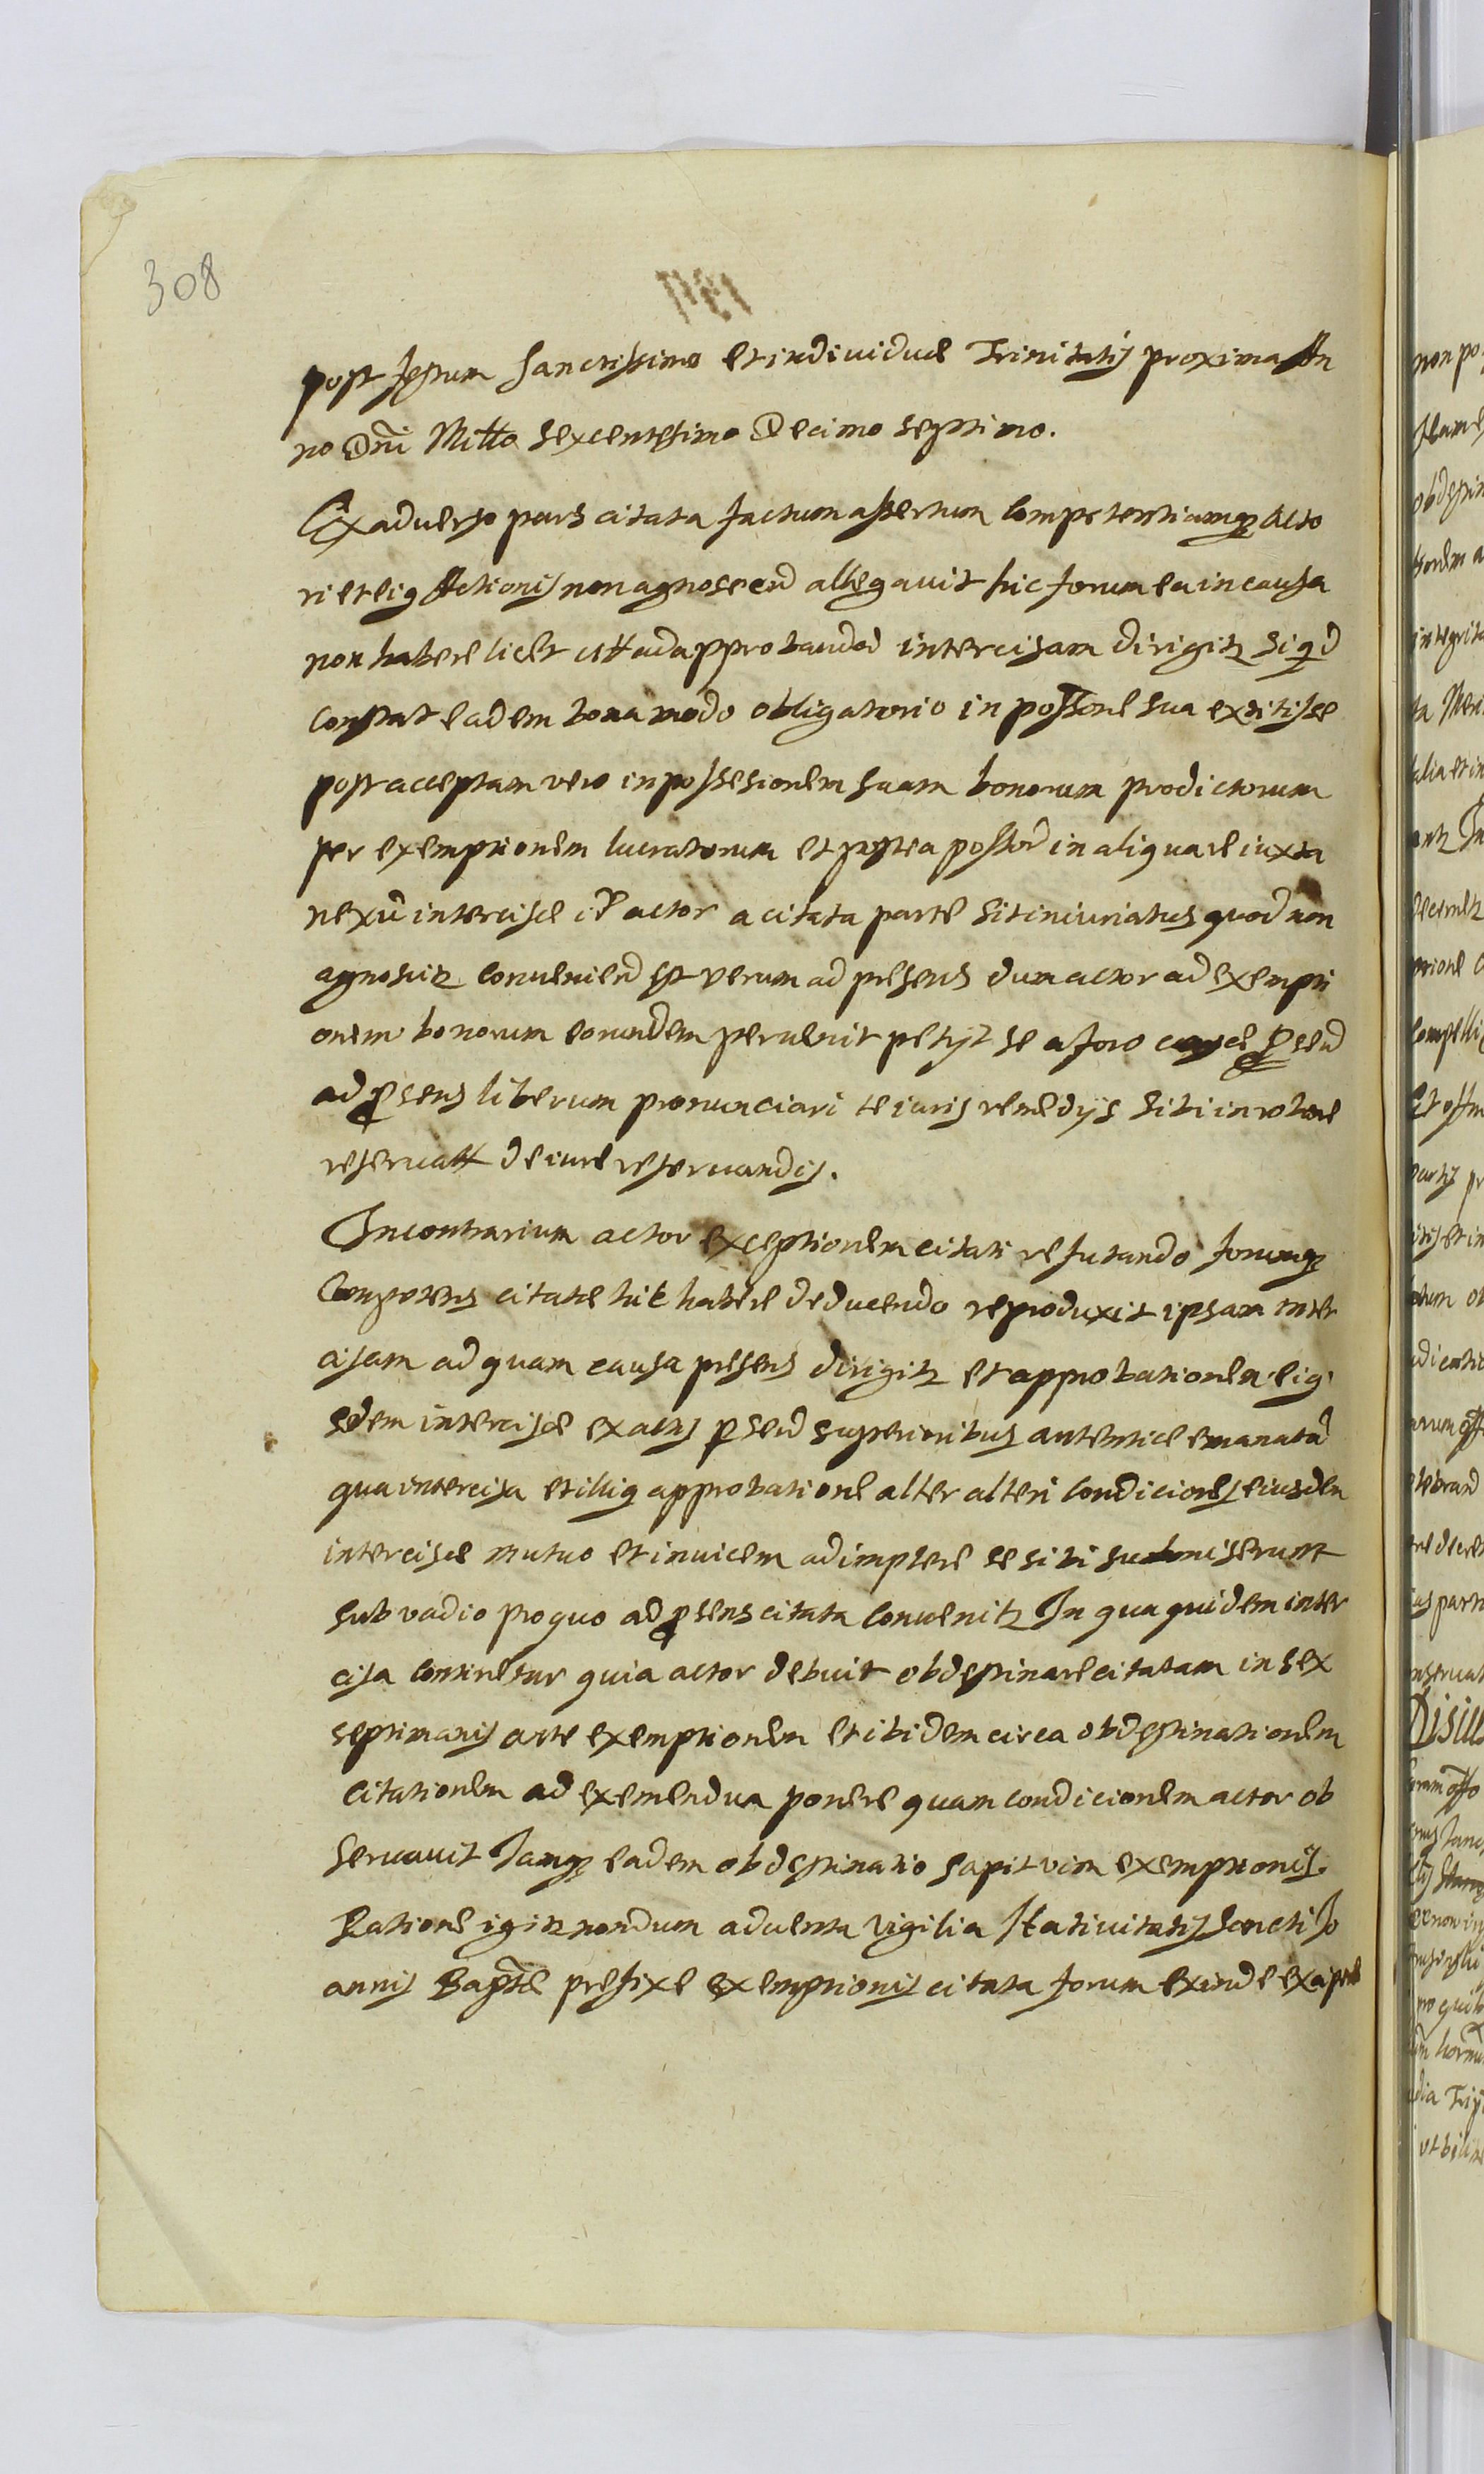 308
post festum Sanctissimo et individuæ Trinitatis proxima An
no Dni Millo Sexcentesimo Decimo septimo.
Ex adverso pars citata factum assertum Competentiamq Acto
ri et eiq Actionis non agnoscend allegavit hic forum ea in causa
non habere licet citt ad approbandad intercisam dirigitz si qd
constat eadem bona modo obligatorio in possone sua extitisse
post acceptam vero in possesionem suam bonorum prædictorum
per exemptionem lucratorum et postea possord in aliqua re iuxta
nexũ intercisæ id actor a citata parte sit iniuriatus quod non
agnoscitz Conveniend est verum ad presens dum actor ad exempti
onem bonorum eorundem pervenit petijt se a foro causæ pserd
ad psens liberum pronunciari te iuris remedijs sibi in robore
reservatt de iure reservandis.
In contrarium actor exceptionem citati refutando forumq
Competens citatæ hic habere deducendo reproduxit ipsam inter
cisam ad quam causa presens dirigitz et approbationem eiq
sdem intercisæ ex actis pserd superioribus autentice emanatã
qua intercisa et illiq approbatione alter alteri Condiciones eiusdem
intercisæ mutuo et invicem adimplere se sibi submiserunt
sub vadio pro quo ad psens citata Convenitz In qua quidem inter
cisa Continetur quia actor debuit obdestinare citatam in sex
septimanis ante exemptionem et ibidem circa obdestinationem
Citationem ad exemendum ponere quam condicionem actor ob
servavit Jamq eadem obdestinatio sapit vim exemptionis.
Ratione igitz nondum adventa vigilia Nativitatis Sancti Jo
annis Baptæ prefixe exemptionis citata forum exinde ex apert